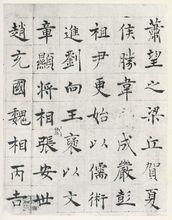 蕭望之梁丘賀夏
侯勝韋 成嚴彭
祖尹更始以儒術
進劉向王褒以文
章顯將相張安世
趙充國魏相丙吉